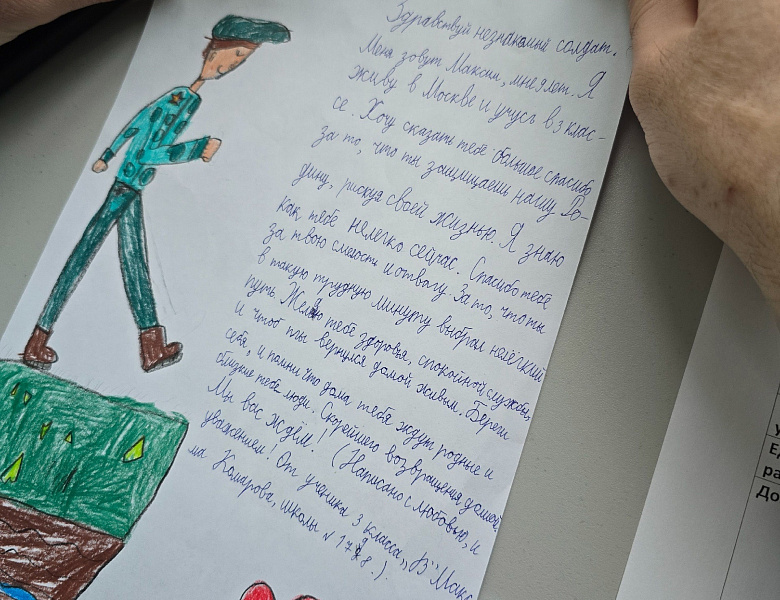 Здравствуй незнакомый солдат.
Меня зовут Максим, мне 9 лет. Я
живу в Москве и учусь в 3 клас-
се. Хочу сказать тебе большое спасибо
за то, что ты защищаешь нашу Ро-
дину, рискуя своей жизнью. Я знаю
как тебе нелегко сейчас. Спасибо тебе
за твою смелость и отвагу. За то, что ты
в такую трудную минуту выбрал нелёгкий
путь. Желаю тебе здоровья, спокойной службы,
и чтоб ты вернулся домой живым. Береги
себя, и помни что дома тебя ждут родные и
близкие тебе люди. Скорейшего возвращения домой.
Мы вас ждём! (Написано с любовью, и
уважением! От ученика 3 класса "В" Макс
ма Комарова, школы №
Ед
ра
До